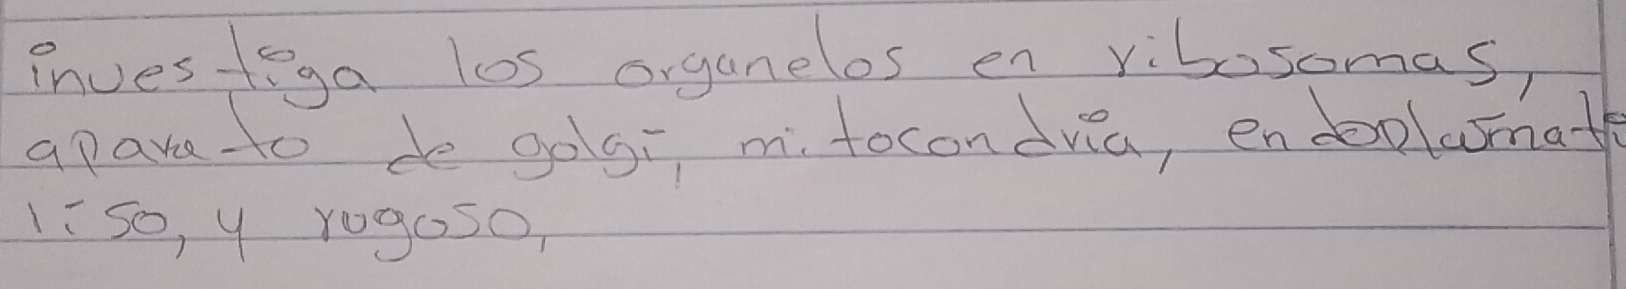 investiga los organelos en ribosomas,
aparato de golgi, mitocondria, endoplasmati
liso, y rugoso,